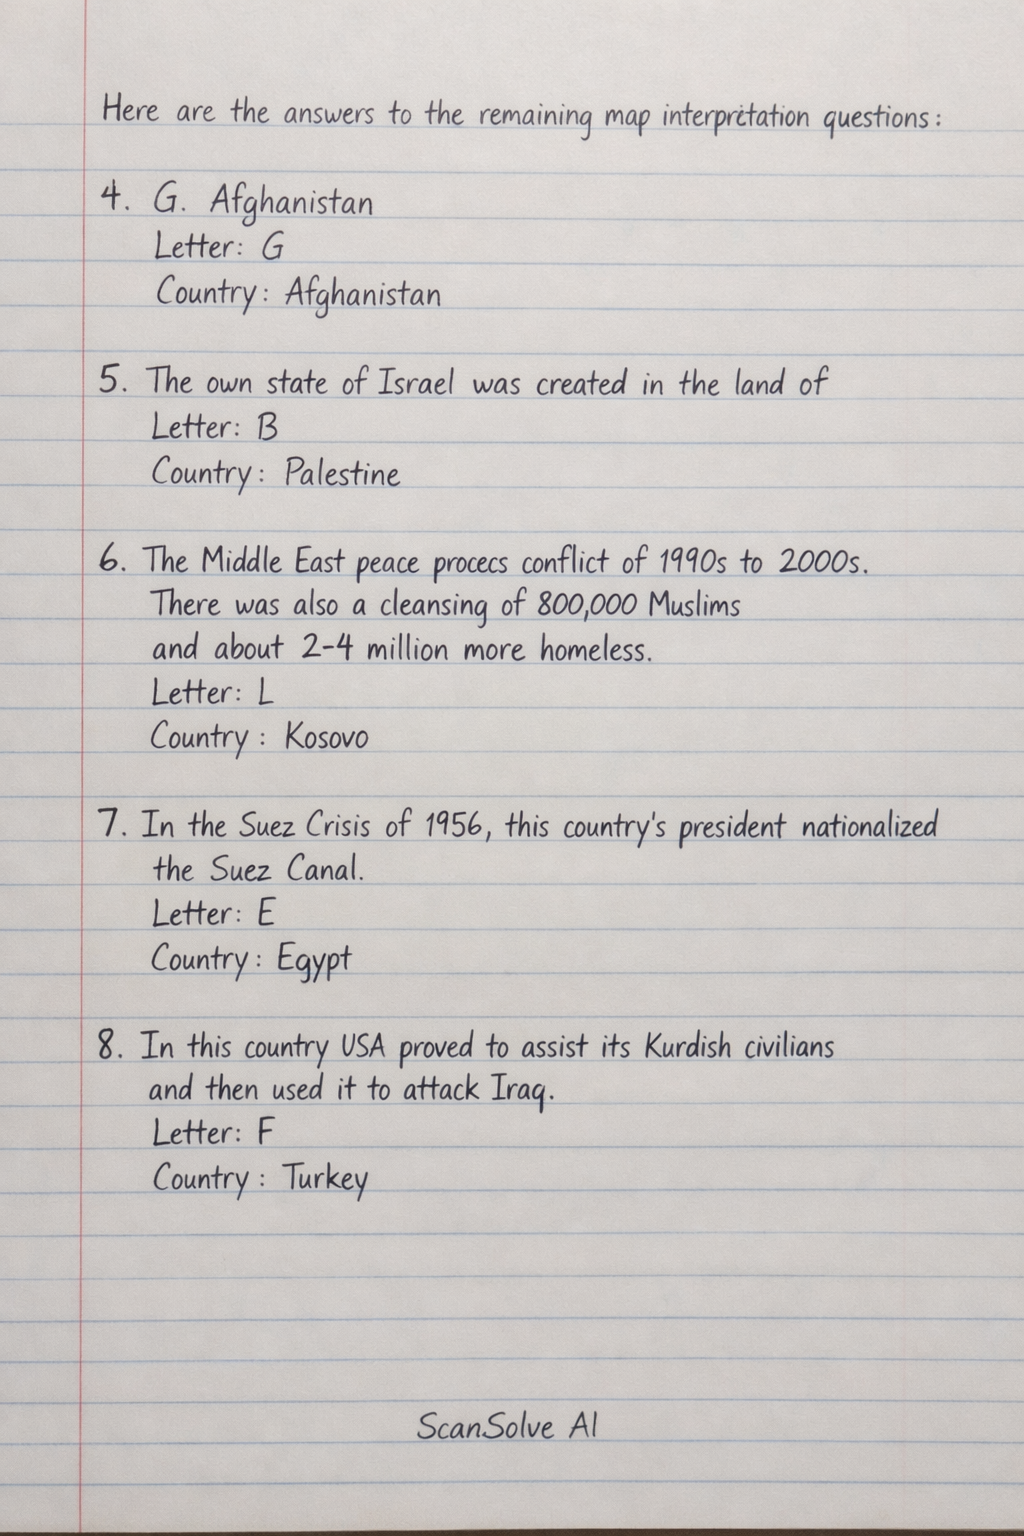 Here are the answers to the remaining map interpretation questions:
4. G. Afghanistan
Letter: G
Country: Afghanistan
5. The own state of Israel was created in the land of
Letter: B
Country: Palestine
6. The Middle East peace procecs conflict of 1990s to 2000s.
There was also a cleansing of 800,000 Muslims
and about 2-4 million more homeless.
Letter: L
Country: Kosovo
7. In the Suez Crisis of 1956, this country's president nationalized
the Suez Canal.
Letter: E
Country: Egypt
8. In this country USA proved to assist its Kurdish civilians
and then used it to attack Iraq.
Letter: F
Country: Turkey
ScanSolve AI